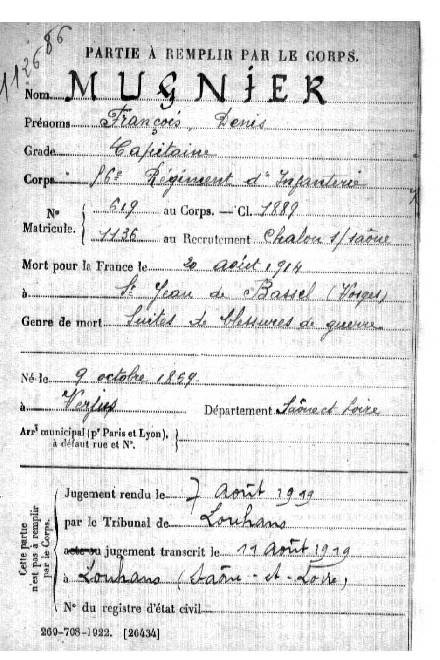 112686
PARTIE À REMPLIR PAR LE CORPS.
Nom MUGNIER
Prénoms François, Denis
Grade Capitaine
Corps 86e Régiment d'Infanterie
No Matricule. 619 au Corps. — Cl. 1889
1136 au Recrutement Chalon s/saône
Mort pour la France le 20 août 1914
à St Jean de Bassel (Vosges)
Genre de mort Suites de blessures de guerre
Né le 9 octobre 1869
à Département Saône et Loire
Arrt municipal (pr Paris et Lyon),
à défaut rue et No.
Cette partie
n'est pas à remplir
par le Corps.
Jugement rendu le 7 Août 1919
par le Tribunal de Louhans
acte ou jugement transcrit le 11 Août 1919
à Louhans (Saône-et-Loire)
No du registre d'état civil
269-708-1922. [26434]